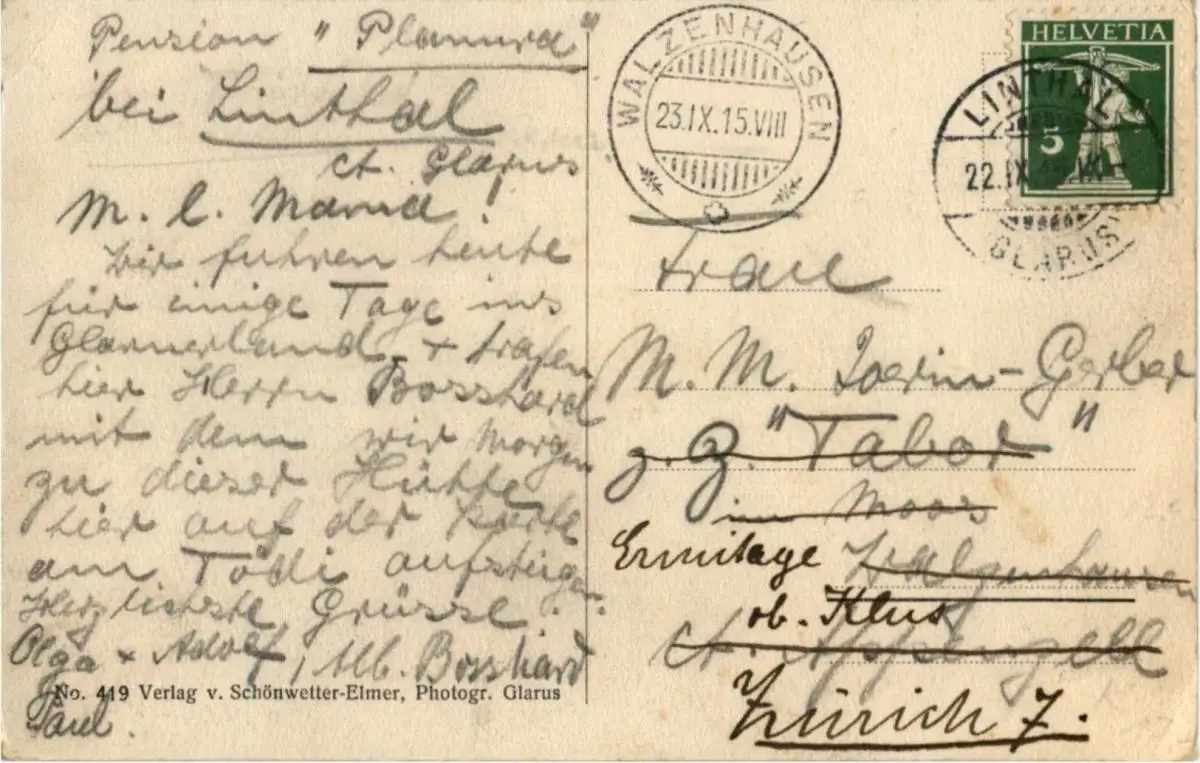 Pension "Planura"
bei Linthal
ct. Glarus
M. l. Mama!
Wir fuhren heute
für einige Tage ins
Glarnerland + trafen
hier Herrn Bosshard
mit dem wir morgen
zu dieser Hütte
hier auf der Karte
am Tödi aufsteigen.
Herzlichste Grüsse.
Olga + Adolf, Alb. Bosshard
No. 419 Verlag v. Schönwetter-Elmer, Photogr. Glarus
Paul.
WALZENHAUSEN
23.IX.15.VIII
HELVETIA
5
LINTHAL
22.IX
(GLARUS)
Frau
M. M. Joerin-Gerber
z. Z. "Tabor"
im Moos
Ermitage Walzenhausen
ob. Klus
ct. Appenzell
Zürich 7.